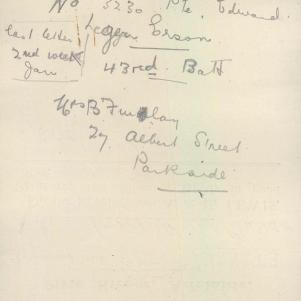 No 3230 Pte. Edward
Last letter
2nd week
Jan
43rd Batt
Mrs B Findlay
27 Albert Street
Parkside